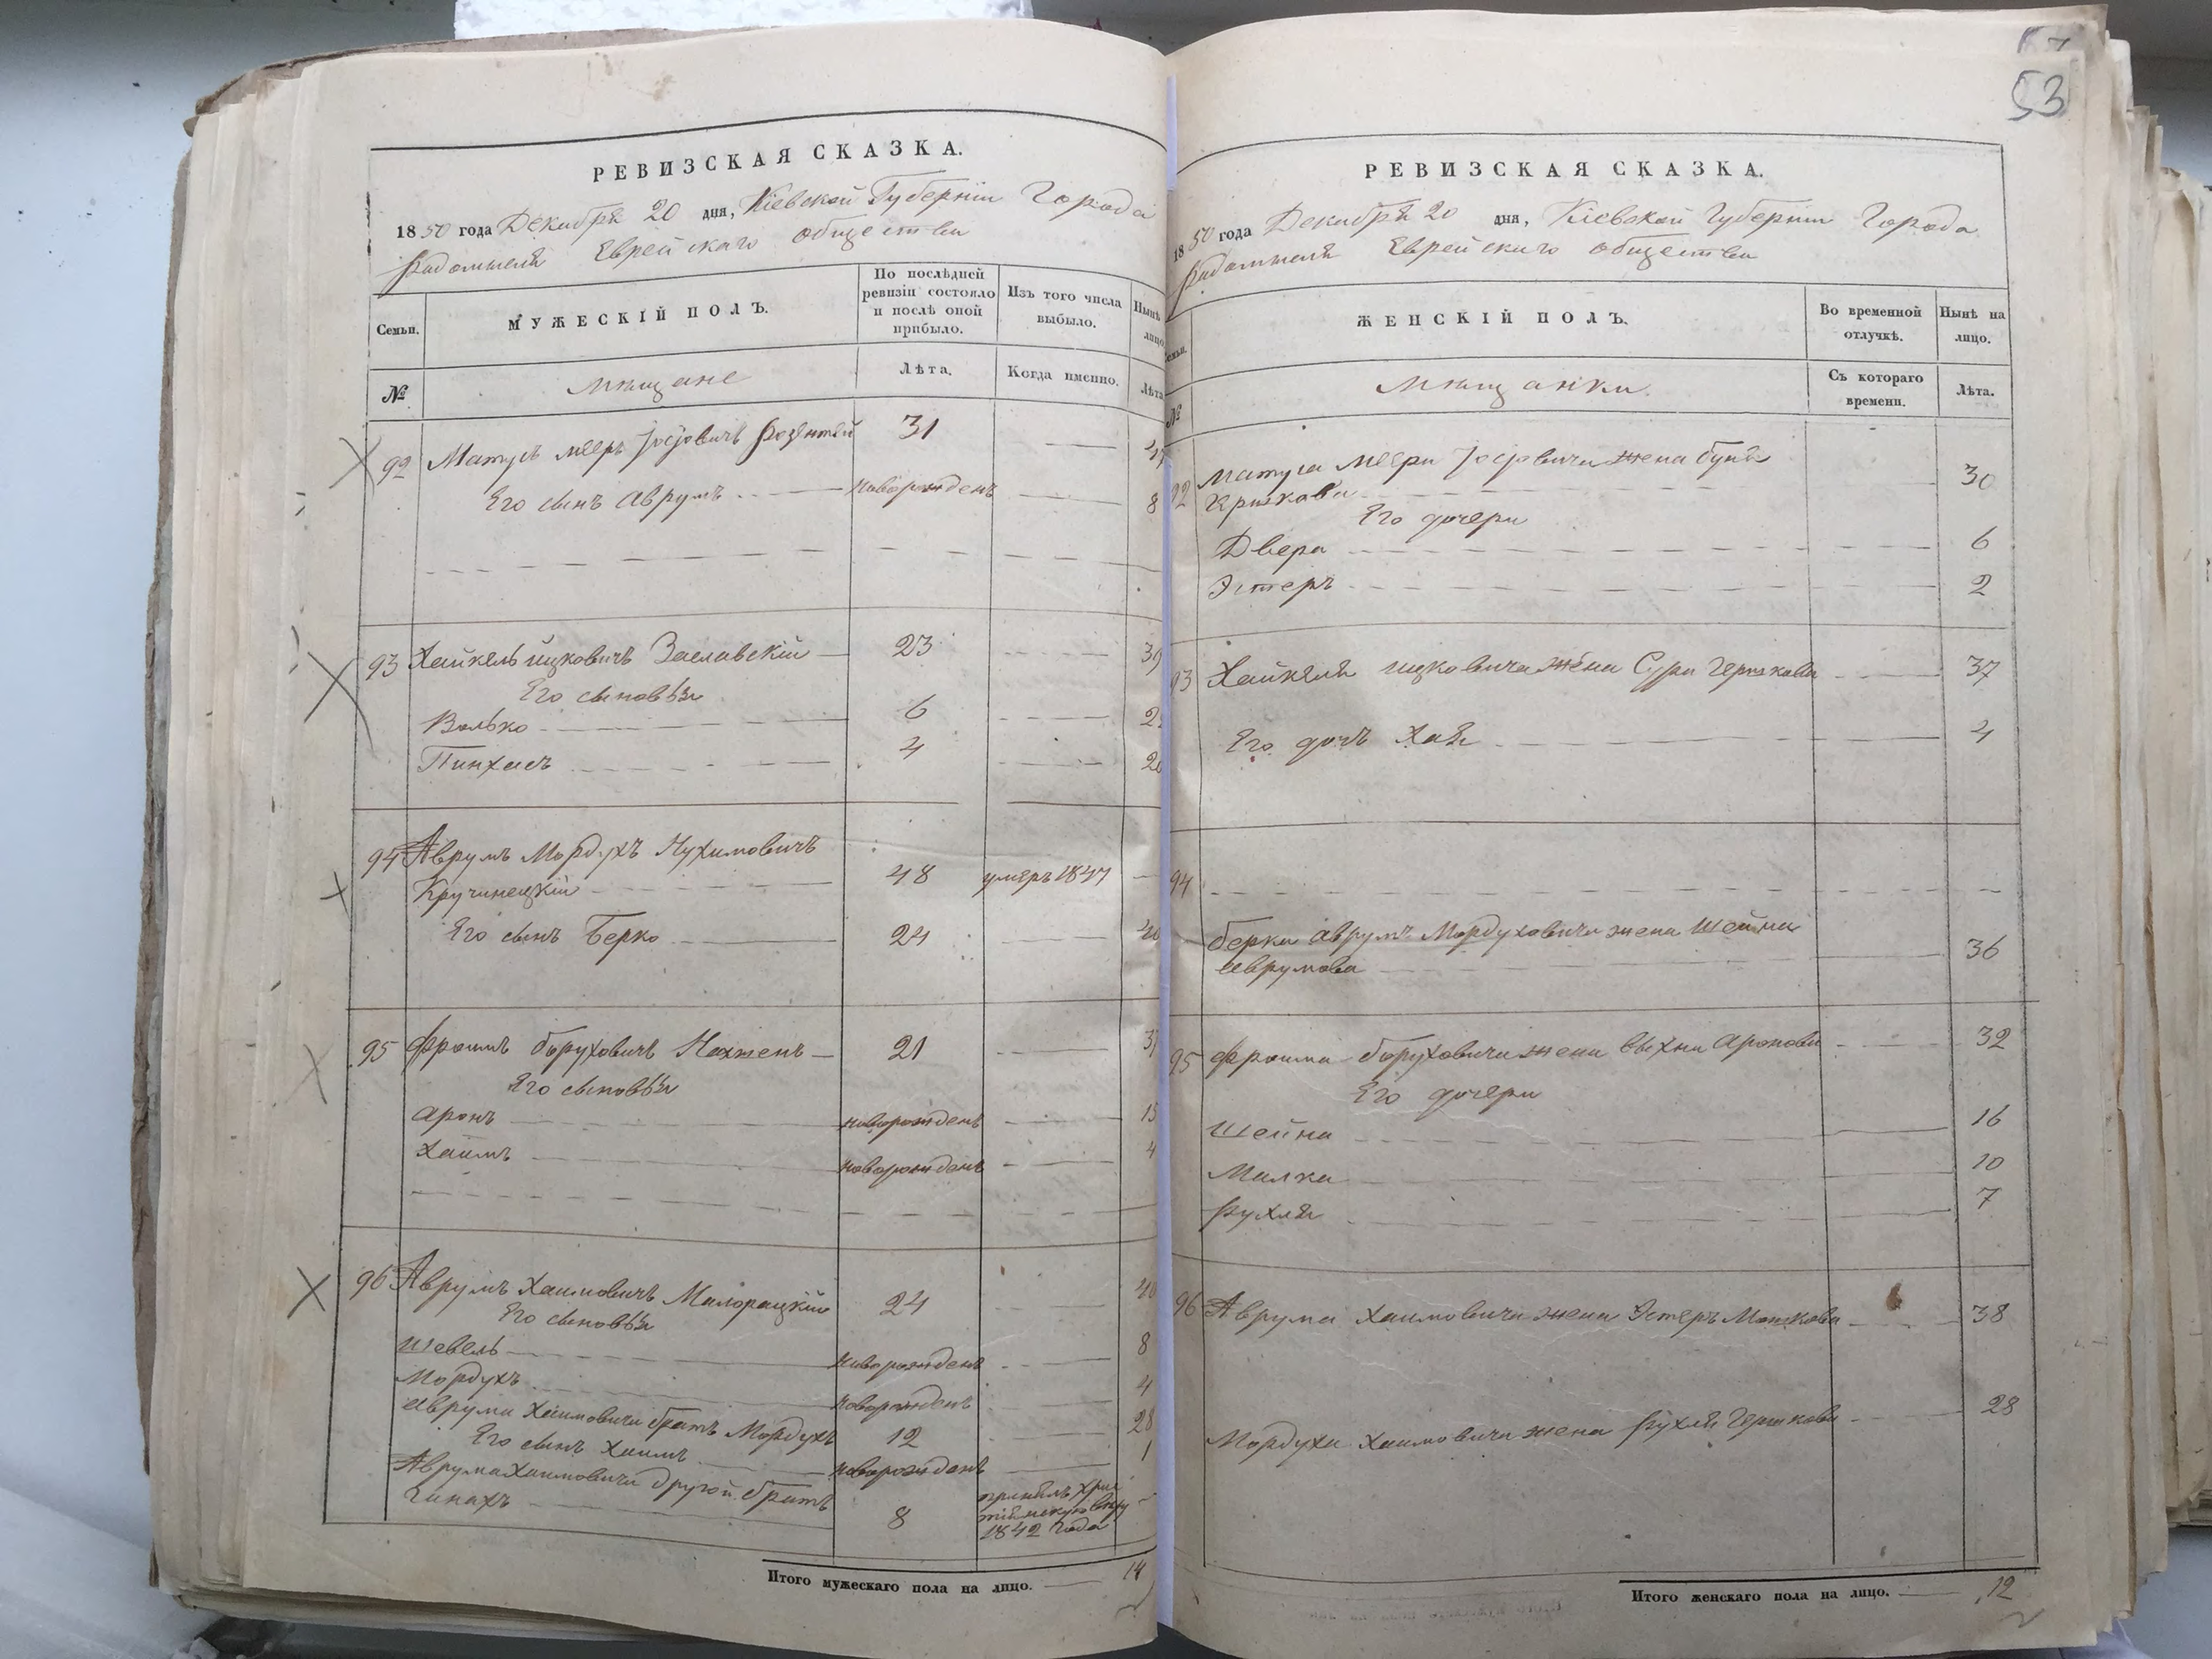 53
РЕВИЗСКАЯ СКАЗКА.
1850 года Декабря 20 дня, Кіевской Губерніи Города
Радомысля Еврейскаго общества
Семьи.
МУЖЕСКІЙ ПОЛЪ.
По послѣдней
ревизіи состояло
и послѣ оной
прибыло.
Изъ того числа
выбыло.
Нынѣ
лицо
№
мѣщане
Лѣта.
Когда именно.
Лѣта
92 Матусъ Мееръ Іосіовичъ 31
Его сынъ Аврумъ новорожденъ 8
93 Хайкель Ицковичъ Заславскій 23 39
Его сыновья
Волько 6 22
Пинхасъ 4 20
94 Аврумъ Мордухъ Нухимовичъ
Кручинецкій 48 умеръ 1847
Его сынъ Берко 24 40
95 Фроимъ Боруховичъ 21 37
Его сыновья
Аронъ новорожденъ 15
Хаимъ новорожденъ 4
96 Аврумъ Хаимовичъ Малорацкій 24 40
Его сыновья
Шевель новорожденъ 8
Мордухъ новорожденъ 4
Аврума Хаимовича братъ Мордухъ 12 28
Его сынъ Хаимъ новорожденъ 1
Аврума Хаимовича другой братъ
8 1842 года
Итого мужескаго пола на лицо. 14
РЕВИЗСКАЯ СКАЗКА.
1850 года Декабря 20 дня, Кіевской Губерніи Города
Радомысля Еврейскаго общества
Семьи.
ЖЕНСКІЙ ПОЛЪ.
Во временной
отлучкѣ.
Нынѣ на
лицо.
№
мѣщанки
Съ котораго
времени.
Лѣта.
92 Матуса Меера Іосіовича жена Буня
30
Его дочери
Двера 6
Эстеръ 2
93 Хайкеля Ицковича жена Сура Гершкова 37
Его дочь Хая 4
94
Берка Аврумъ Мордуховича жена Шейна
Аврумова 36
95 Фроима Боруховича жена Выхна Аронова 32
Его дочери
Шейна 16
Малка 10
Рухля 7
96 Аврума Хаимовича жена Эстеръ Мошкова 38
Мордуха Хаимовича жена Рухля Гершкова 28
Итого женскаго пола на лицо. 12